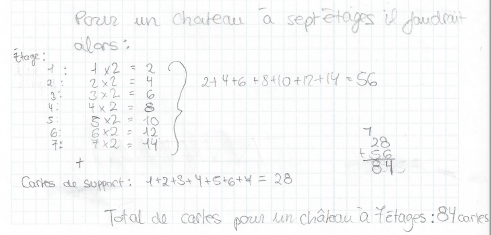 Pour un chateau à sept étages il faudrait
alors:
Étage:
1: 1×2 = 2
2: 2×2 = 4
3: 3×2 = 6
4: 4×2 = 8
5: 5×2 = 10
6: 6×2 = 12
7: 7×2 = 14
2+4+6+8+10+12+14 = 56
+
Cartes de support: 1+2+3+4+5+6+7 = 28
1
28
+56
84
Total de cartes pour un château à 7 étages: 84 cartes